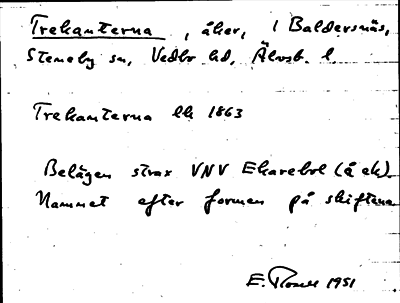 Trekanterna, åker, i Baldersnäs,
Steneby sn, Vedbo hd, Älvsb. l.
Trekanterna lk 1863
Belägen strax VNV Ekarebol (å ek).
Namnet efter formen på skiftena
E. 1951